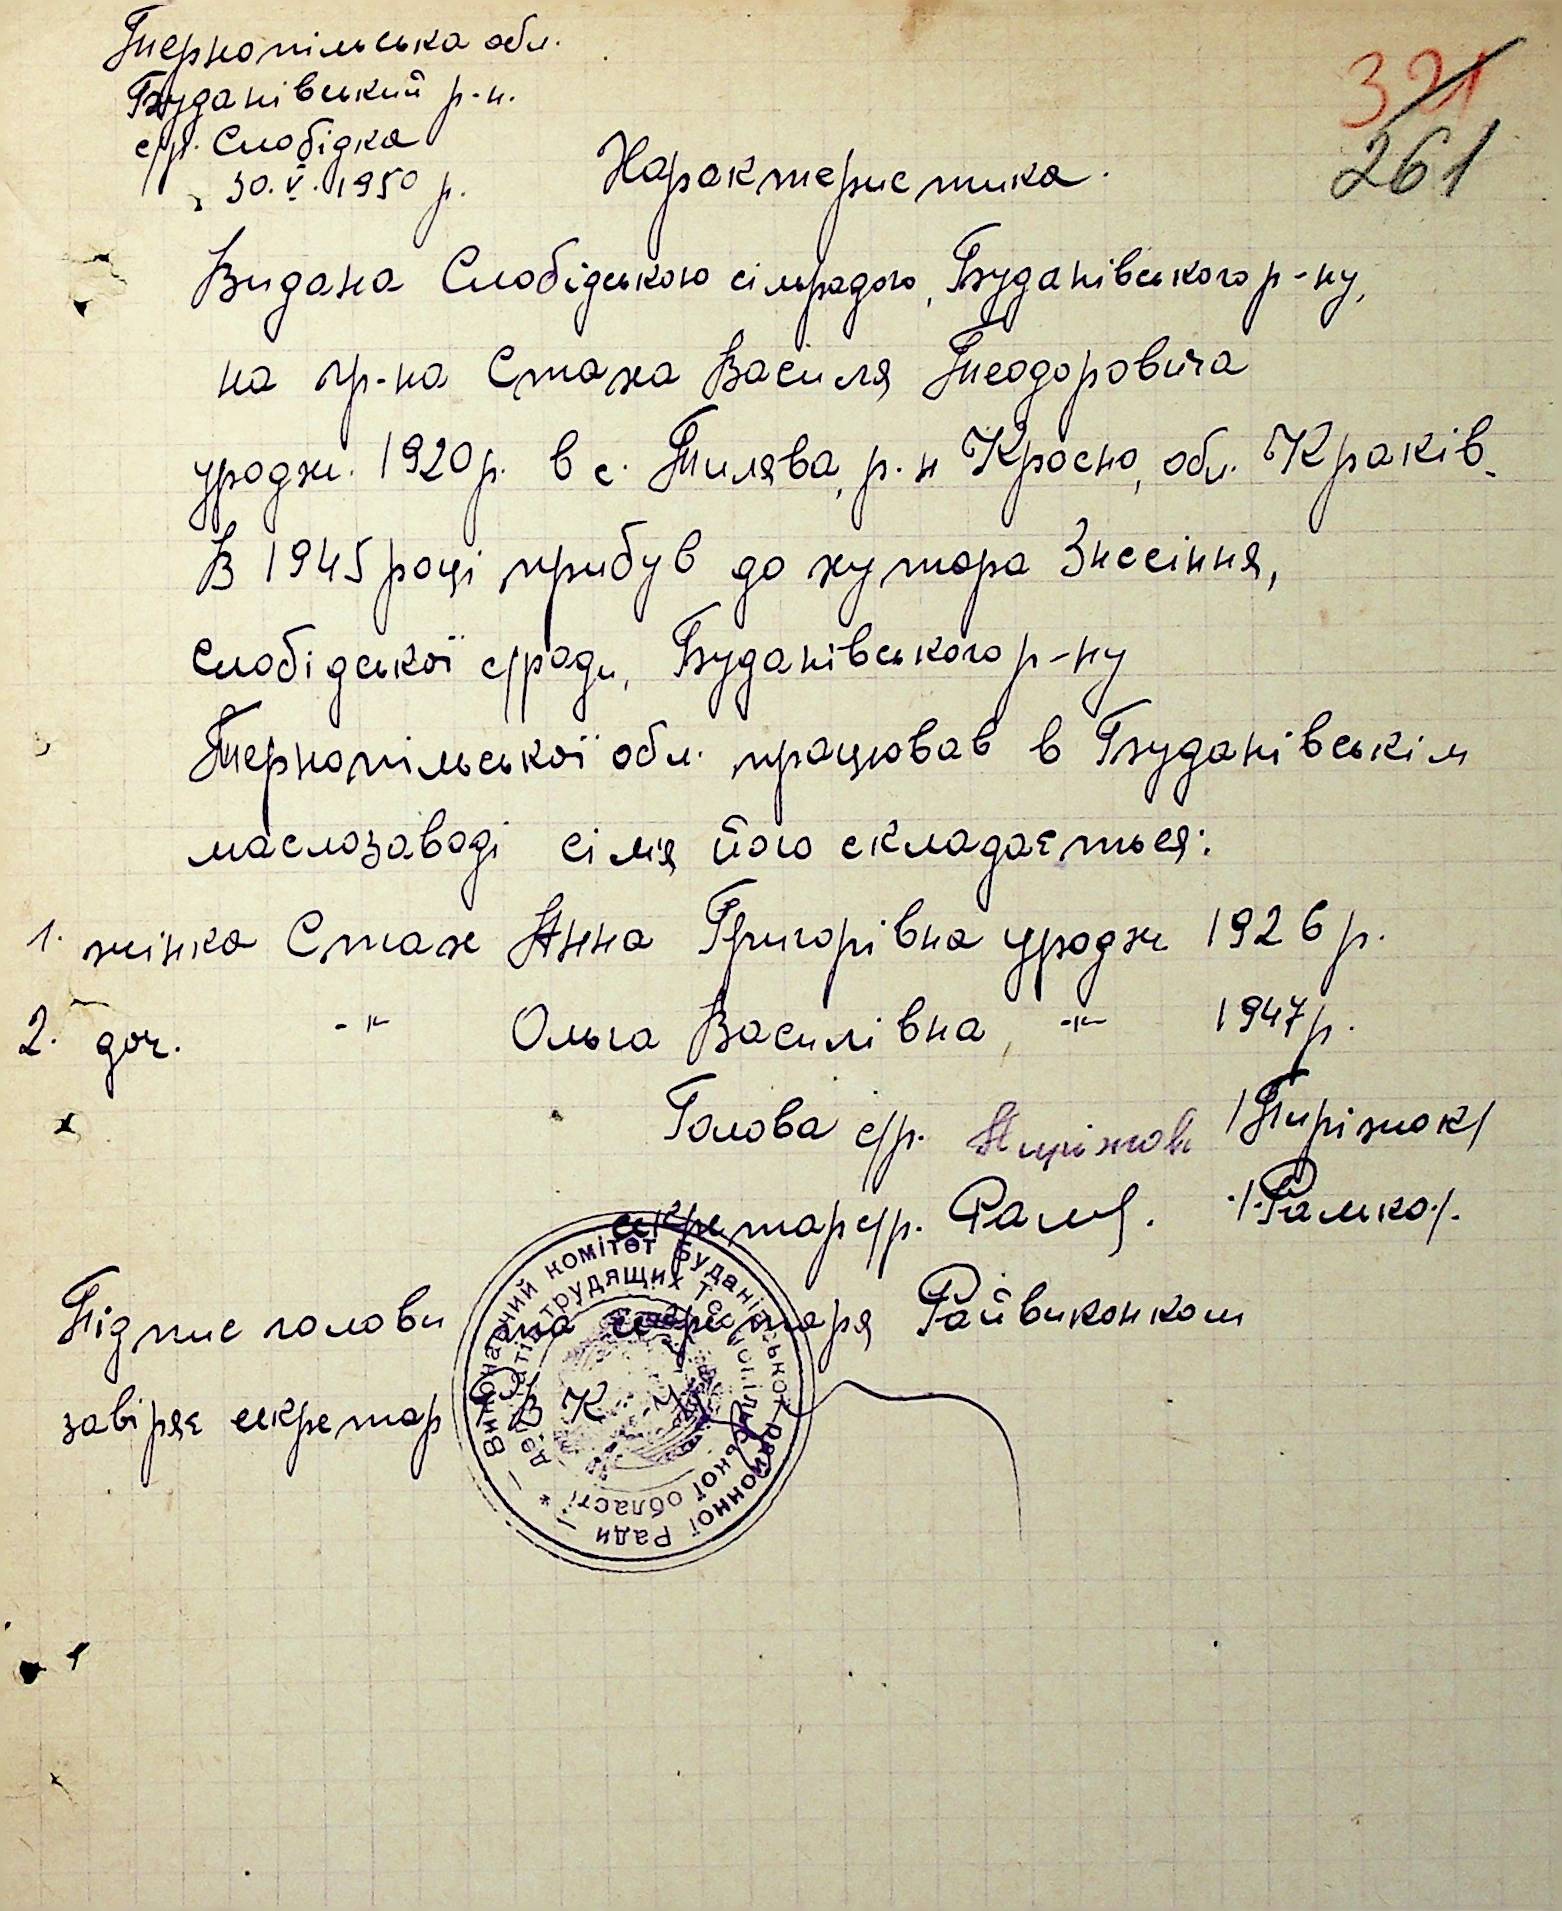 Тернопільська обл.
Буданівський р-н.
с/р. Слобідка
30.V.1950 р.
321
261
Характеристика.
Видана Слобідською сільрадою, Буданівського р-ну,
на гр-на Стаха Василя Теодоровича
уродж. 1920 р. в с. Тилява, р-н Кросно, обл. Краків.
В 1945 році прибув до хутора Знесіння,
Слобідської с/ради, Буданівського р-ну
Тернопільської обл. працював в Буданівськім
маслозаводі сімя його складається:
1. жінка Стах Анна Григорівна уродж 1926 р.
2. доч. -"- Ольга Василівна, -"- 1947 р.
Голова с/р. /Пиріжок/
секретар с/р. /Ралко/.
Підпис голови та секретаря Райвиконком
завіряє секретар РВК
Виконавчий комітет Буданівської районної Ради
депутатів трудящих Тернопільської області *